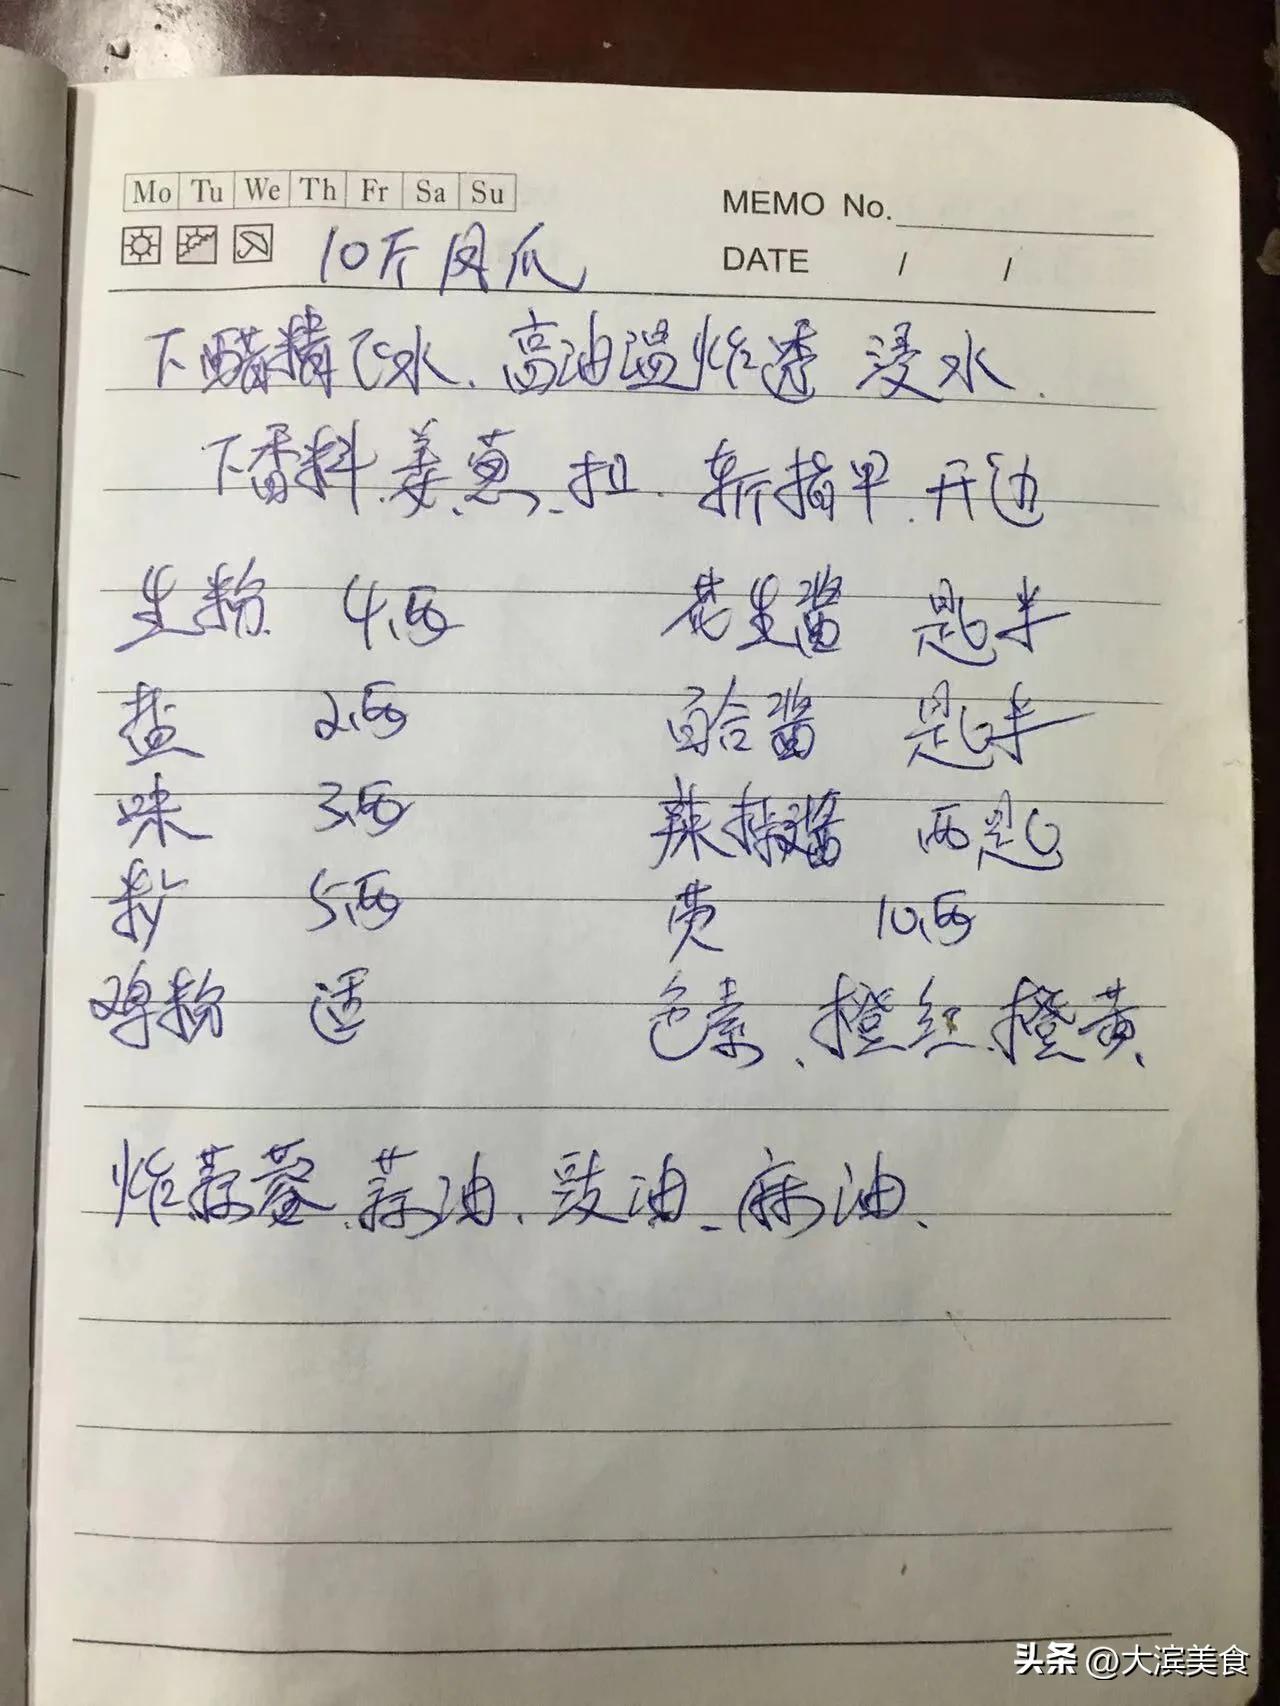 Mo Tu We Th Fr Sa Su
MEMO No.
DATE / /
10斤凤爪
下醋精飞水、高油温炸透 浸水.
下香料、姜、葱、扣、斩指甲、开边
生粉 4.两 花生酱 匙半
盐 2.两 百合酱 匙半
味 3.两 辣椒酱 两匙
5.两 10.两
鸡粉 适 色素、橙红、橙黄、
炸蒜蓉、蒜油、豉油、麻油、
头条 @大滨美食